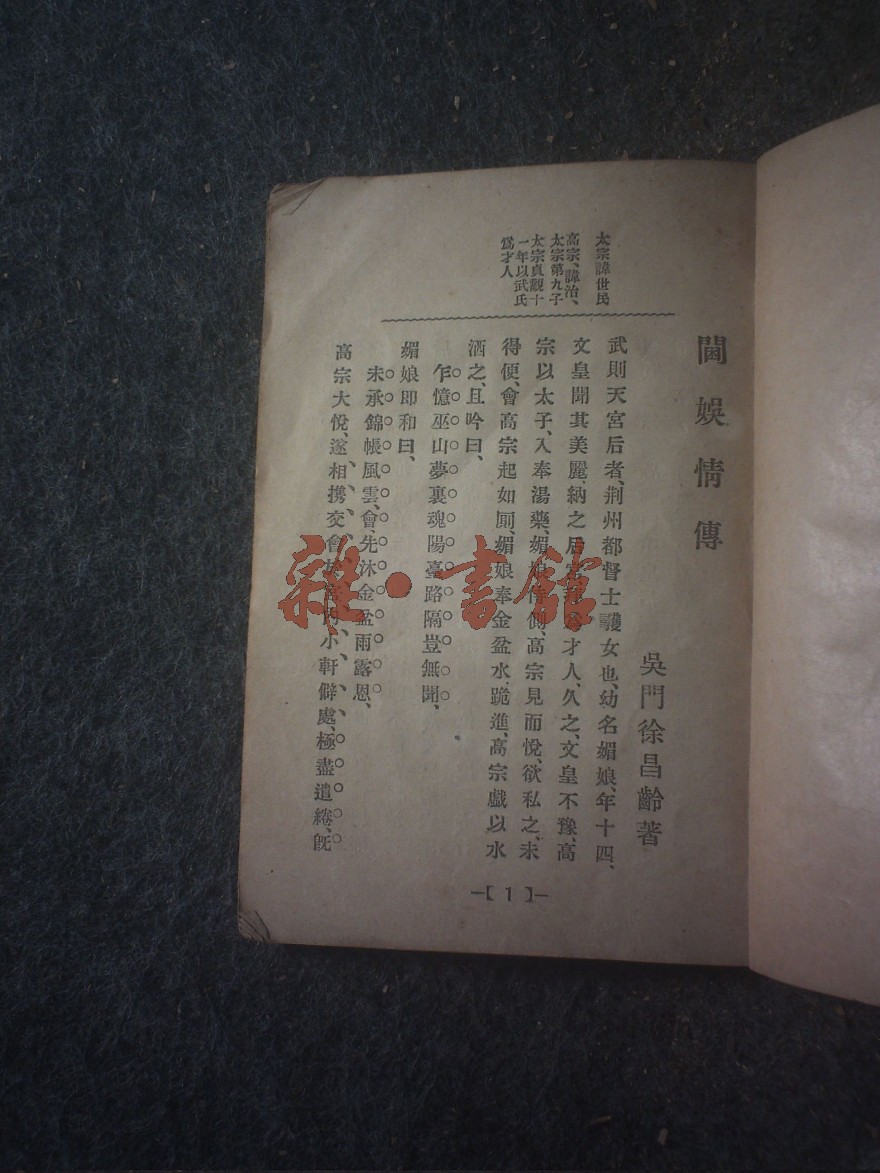 閫娛情傳
吳門徐昌齡著
太宗諱世民
高宗、諱治、
太宗第九子
太宗貞觀十
一年以武氏
爲才人
武則天宮后者、荆州都督士彠女也、幼名媚娘、年十四、
文皇聞其美麗、納之后宮、才人、久之、文皇不豫、高
宗以太子、入奉湯藥、媚娘侍側、高宗見而悅、欲私之、未
得便、會高宗起如厠、媚娘奉金盆水、跪進、高宗戲以水
洒之、且吟曰、
乍憶巫山夢裏魂陽臺路隔豈無聞、
媚娘即和曰、
未承錦帳風雲會、先沐金盆雨露恩、
高宗大悅、遂相攜交會、小軒僻處、極盡遣綣、旣
—【1】—
雜·書館